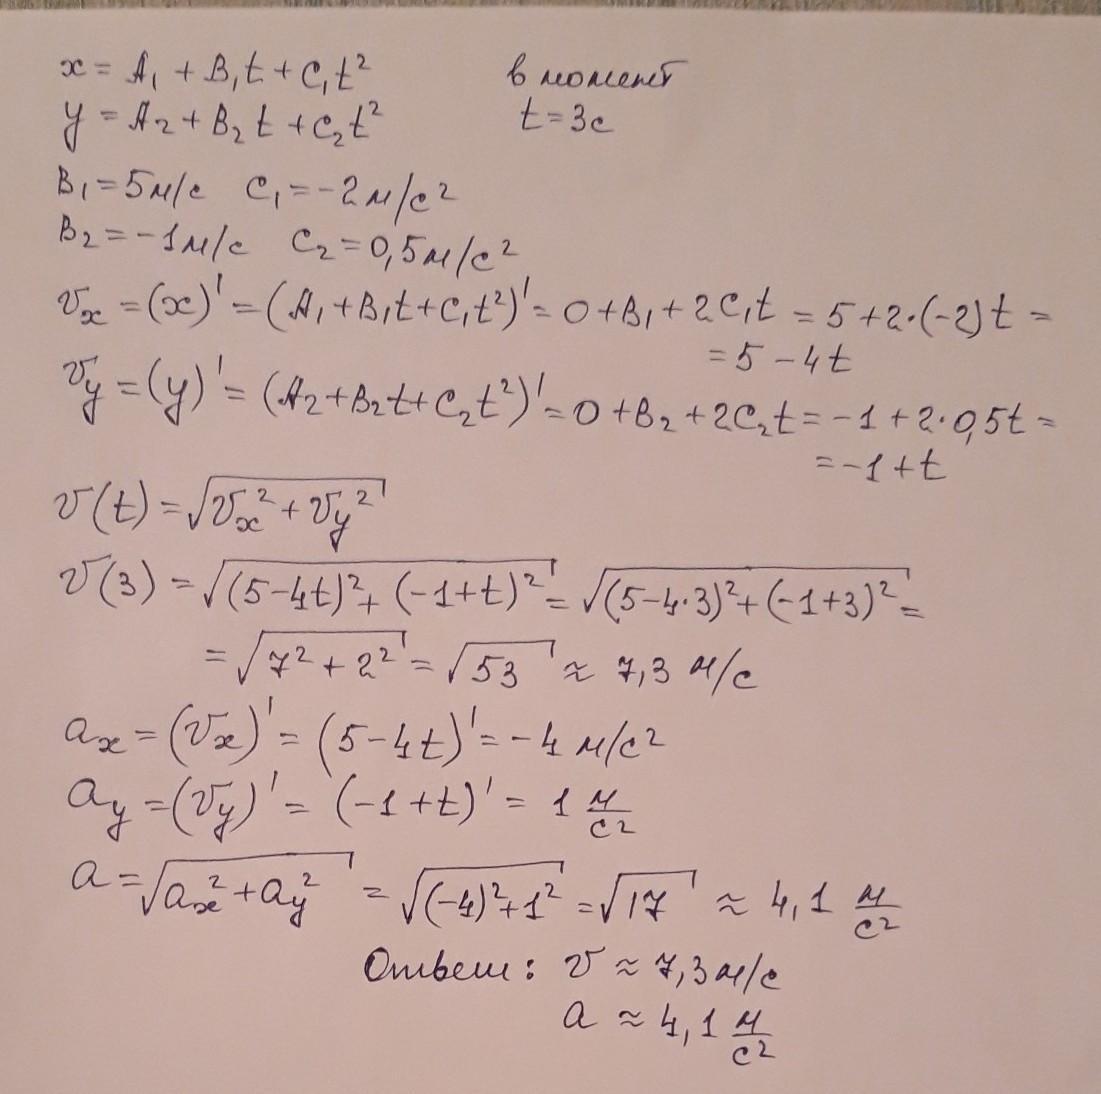 x = A₁ + B₁t + C₁t² в момент
y = A₂ + B₂t + C₂t² t = 3с
B₁ = 5м/с C₁ = -2м/с²
B₂ = -1м/с C₂ = 0,5м/с²
υₓ = (x)' = (A₁ + B₁t + C₁t²)' = 0 + B₁ + 2C₁t = 5 + 2·(-2)t =
= 5 - 4t
υᵧ = (y)' = (A₂ + B₂t + C₂t²)' = 0 + B₂ + 2C₂t = -1 + 2·0,5t =
= -1 + t
υ(t) = √(υₓ² + υᵧ²)
υ(3) = √((5-4t)² + (-1+t)²) = √((5-4·3)² + (-1+3)²) =
= √(7² + 2²) = √53 ≈ 7,3 м/с
aₓ = (υₓ)' = (5-4t)' = -4 м/с²
aᵧ = (υᵧ)' = (-1+t)' = 1 м/с²
a = √(aₓ² + aᵧ²) = √((-4)² + 1²) = √17 ≈ 4,1 м/с²
Ответ: υ ≈ 7,3 м/с
a ≈ 4,1 м/с²